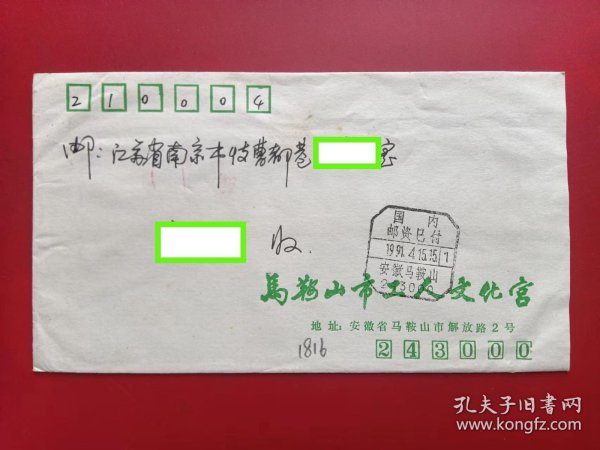 210004
邮:江苏省南京市 曹都巷 室
收.
国 内
邮资已付
1991.4.15.15 1
安徽马鞍山
243000
馬鞍山市工人文化宫
地址:安徽省马鞍山市解放路2号
1816
243000
孔夫子旧书网
www.kongfz.com